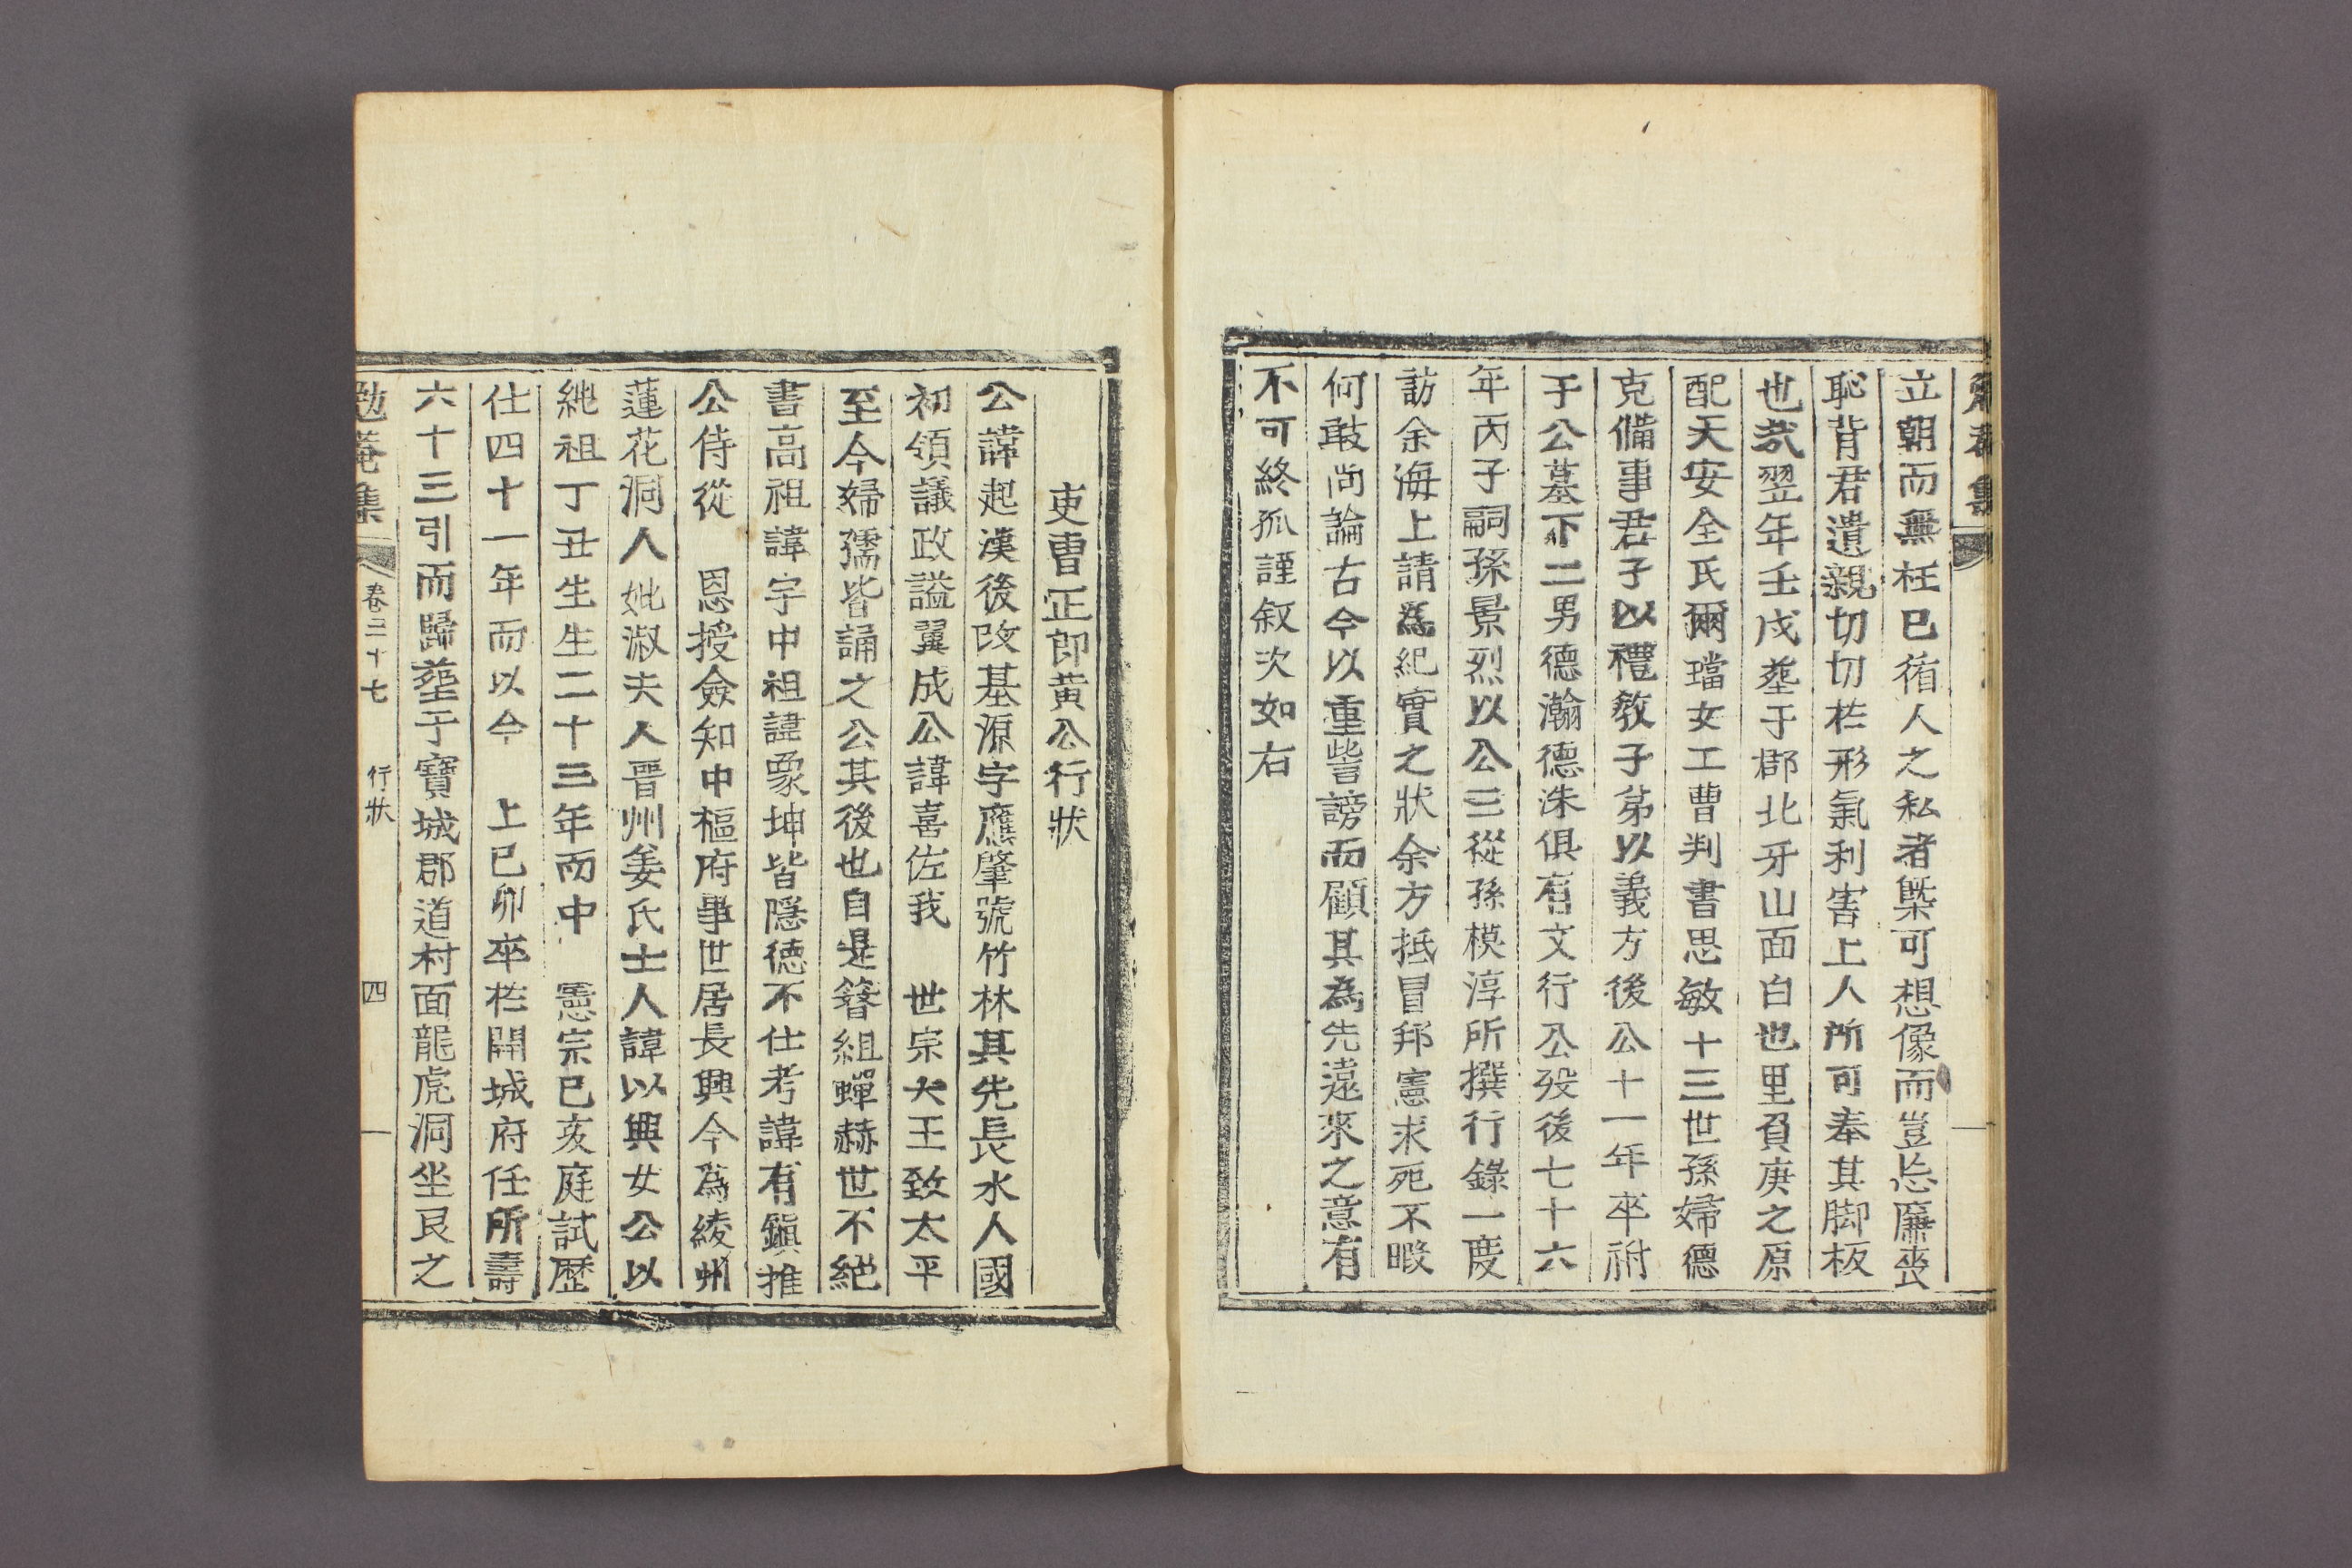 立朝而無枉已循人之私者槩可想像而豈忘廉喪
恥背君遺親切切於形氣利害上人所可奉其脚板
也㢤翌年壬戌葬于郡北牙山面白也里負庚之原
配天安全氏爾璿女工曹判書思敏十三世孫婦德
克備事君子以禮敎子弟以義方後公十一年卒祔
于公墓下二男德瀚德洙俱有文行公歿後七十六
年丙子嗣孫景烈以公三從孫模淳所撰行錄一度
訪余海上請爲紀實之狀余方抵冒邦憲求死不暇
何敢尙論古今以重訾謗而顧其為先遠來之意有
不可終孤謹叙次如右
吏曹正郎黃公行狀
公諱起漢後改基源字應肇號竹林其先長水人國
初領議政謚翼成公諱喜佐我 世宗大王致太平
至今婦孺皆誦之公其後也自是簪組蟬赫世不絕
書高祖諱宇中祖諱象坤皆隱德不仕考諱有鎭推
公侍從 恩授僉知中樞府事世居長興今為綾州
蓮花洞人妣淑夫人晋州姜氏士人諱以興女公以
純祖丁丑生生二十三年而中 憲宗己亥庭試歷
仕四十一年而以今 上己卯卒於開城府任所壽
六十三引而歸葬于寶城郡道村面龍虎洞坐艮之
勉菴集 卷二十七 行狀 四